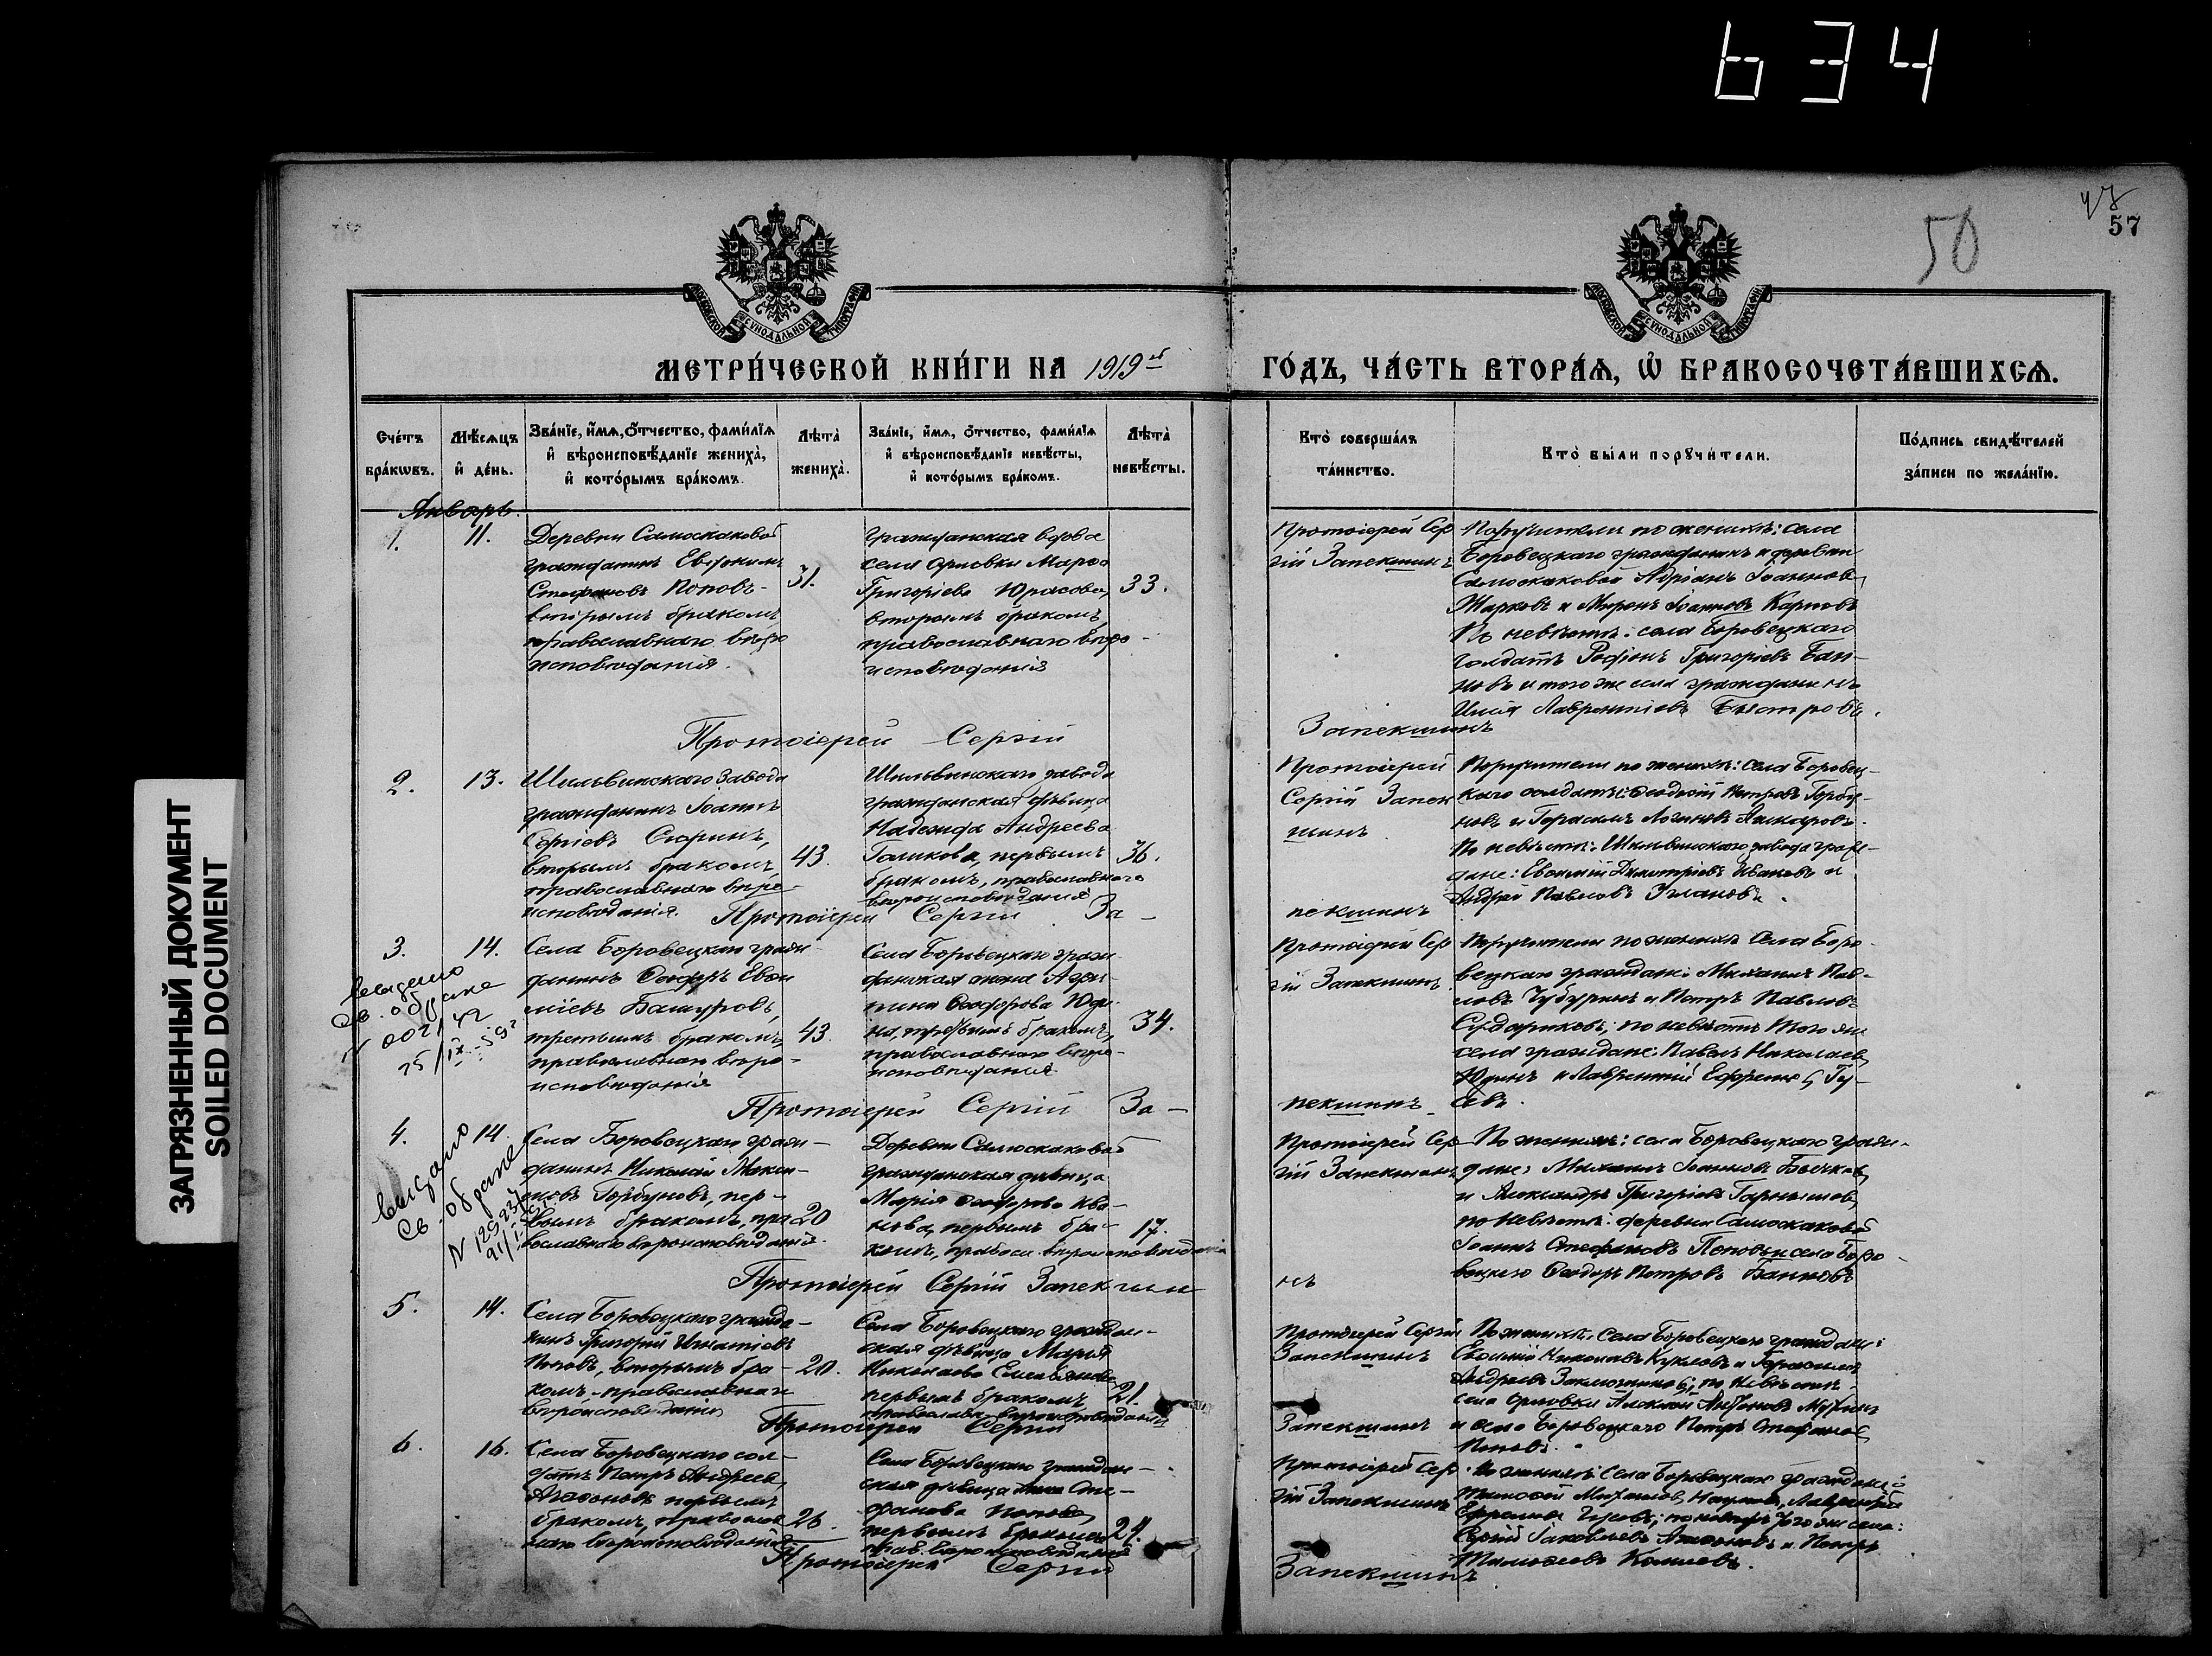 634
ЗАГРЯЗНЕННЫЙ ДОКУМЕНТ
SOILED DOCUMENT
50
57
МОСКОВСКОЙ СУНОДАЛЬНОЙ ТИПОГРАФІИ
МОСКОВСКОЙ СУНОДАЛЬНОЙ ТИПОГРАФІИ
МЕТРИ́ЧЕСКОЙ КНИ́ГИ НА 1919й
ГО́ДЪ, ЧА́СТЬ ВТОРА́Я, Ѡ҆ БРАКОСОЧЕТА́ВШИХСЯ.
Сче́тъ бра́кѡвъ.
Мѣ́сяцъ и҆ де́нь.
Зва́нїе, и҆́мя, ѻ҆́тчество, фами́лїя и҆ вѣроисповѣ́данїе жениха̀, и҆ кото́рымъ бра́комъ.
Лѣта̀ жениха̀.
Зва́нїе, и҆́мя, ѻ҆́тчество, фами́лїя и҆ вѣроисповѣ́данїе невѣ́сты, и҆ кото́рымъ бра́комъ.
Лѣта̀ невѣ́сты.
Кто̀ соверша́лъ та́инство.
Кто̀ бы́ли порꙋчи́тели.
По́дпись свидѣ́телей за́писи по жела́нїю.
Январь.
1.
11.
Деревни Самоскаковой
гражданинъ Евфимъ
Стефановъ Поповъ-
вторымъ бракомъ
православнаго вѣро
исповѣданія.
31.
Гражданская вдова
села Орловки Марѳа
Григоріева Юрасова,
вторымъ бракомъ,
православнаго вѣро-
исповѣданія
33.
Протоіерей Сер
гій Запекшинъ
Поручители по женихѣ: села
Боровецкаго гражданинъ и деревни
Самоскаковой Адріанъ Іоанновъ
Жарковъ и Миронъ Іоанновъ Карповъ
По невѣстѣ: села Боровецкаго
солдатъ Родіонъ Григоріевъ Бан-
новъ и того же села гражданинъ
Илія Лаврентіевъ Быстровъ.
Протоіерей Сергій Запекшинъ
2.
13.
Шильвинскаго завода
гражданинъ Іоаннъ
Сергіевъ Сюринъ,
вторымъ бракомъ,
православнаго вѣро-
исповѣданія.
43.
Шильвинскаго завода
гражданская дѣвица
Надежда Андреева
Галикова, первымъ
бракомъ, православнаго
вѣроисповѣданія
36.
Протоіерей
Сергій Запек
шинъ.
Поручители по женихѣ: села Боровец-
каго солдаты: Ѳеодосій Петровъ Горбу-
новъ и Герасимъ Логиновъ
По невѣстѣ: Шильвинскаго завода граж-
дане: Евѳимій Димитріевъ Ивановъ и
Андрей Павловъ Улановъ.
Протоіерей Сергій За-
пекшинъ
3.
14.
выдано
св. о браке
Села Боровецкаго граж-
данинъ Ѳеодоръ Евѳи
міевъ Башуровъ,
третьимъ бракомъ,
православнаго вѣро-
исповѣданія
43.
Села Боровецкаго граж-
данская жена Агри-
пина Ѳеодорова Юди-
на, третьимъ бракомъ,
православнаго вѣро-
исповѣданія
34.
Протоіерей Сер
гій Запекшинъ.
Поручители по женихѣ Села Боро-
вецкаго граждане: Михаилъ Пав-
ловъ Чубуринъ и Петръ Павловъ
Судариковъ; по невѣстѣ того же
села граждане: Павелъ Николаевъ
Юдинъ и Лаврентій Ефремовъ Гу-
севъ.
Протоіерей Сергій За-
пекшинъ
4.
14.
выдано
Св. об браке
Села Боровецкаго граж-
данинъ Николай Макси-
мовъ Горбуновъ, пер-
вымъ бракомъ, пра
вославнаго вѣроисповѣданія.
20
Деревни Самоскаковой
гражданская дѣвица
Марія Ѳеодорова Ива-
нова, первымъ бра-
комъ, правосл. вѣроисповѣданія
17.
Протоіерей Сер
гій Запекшинъ
По женихѣ: села Боровецкаго граж-
дане: Михаилъ Іоанновъ Бычковъ
и Александръ Григоріевъ Гарнышевъ,
по невѣстѣ: деревни Самоскаковой
Іоаннъ Стефановъ Поповъ и села Боро-
вецкаго Ѳеодоръ Петровъ Банновъ
Протоіерей Сергій Запекши
нъ
5.
14.
Села Боровецкаго гражда-
нинъ Григорій Игнатіевъ
Поповъ, вторымъ бра-
комъ-православнаго
вѣроисповѣданія
20.
Села Боровецкаго граждан-
ская дѣвица Марія
Николаева Емельянова
первымъ бракомъ,
православн. вѣроисповѣданія
21.
Протоіерей Сергій
Запекшинъ
По женихѣ: Села Боровецкаго граждане:
Евѳимій Николаевъ Куклевъ и Герасимъ
Андреевъ; по невѣстѣ:
села Орловки Алексій Мухинъ
и села Боровецкаго Петръ Стефановъ
Поповъ.
Протоіерей Сергій
Запекшинъ
6.
16.
Села Боровецкаго сол-
датъ Петръ Андреевъ
Агаѳоновъ первымъ
бракомъ, православ
наго вѣроисповѣданія
26.
Села Боровецкаго граждан-
ская дѣвица Анна Сте-
фанова Попова,
первымъ бракомъ
прав. вѣроисповѣданія
24.
Протоіерей Сер
гій Запекшинъ
По женихѣ: Села Боровецкаго граждане:
Тимоѳей Михаиловъ Наумовъ, Лаврентій
Ефремовъ Гусевъ; по невѣстѣ того же села:
Сергій Іаковлевъ Агаѳоновъ и Петръ
Тимоѳеевъ
Протоіерей Сергій
Запекшинъ